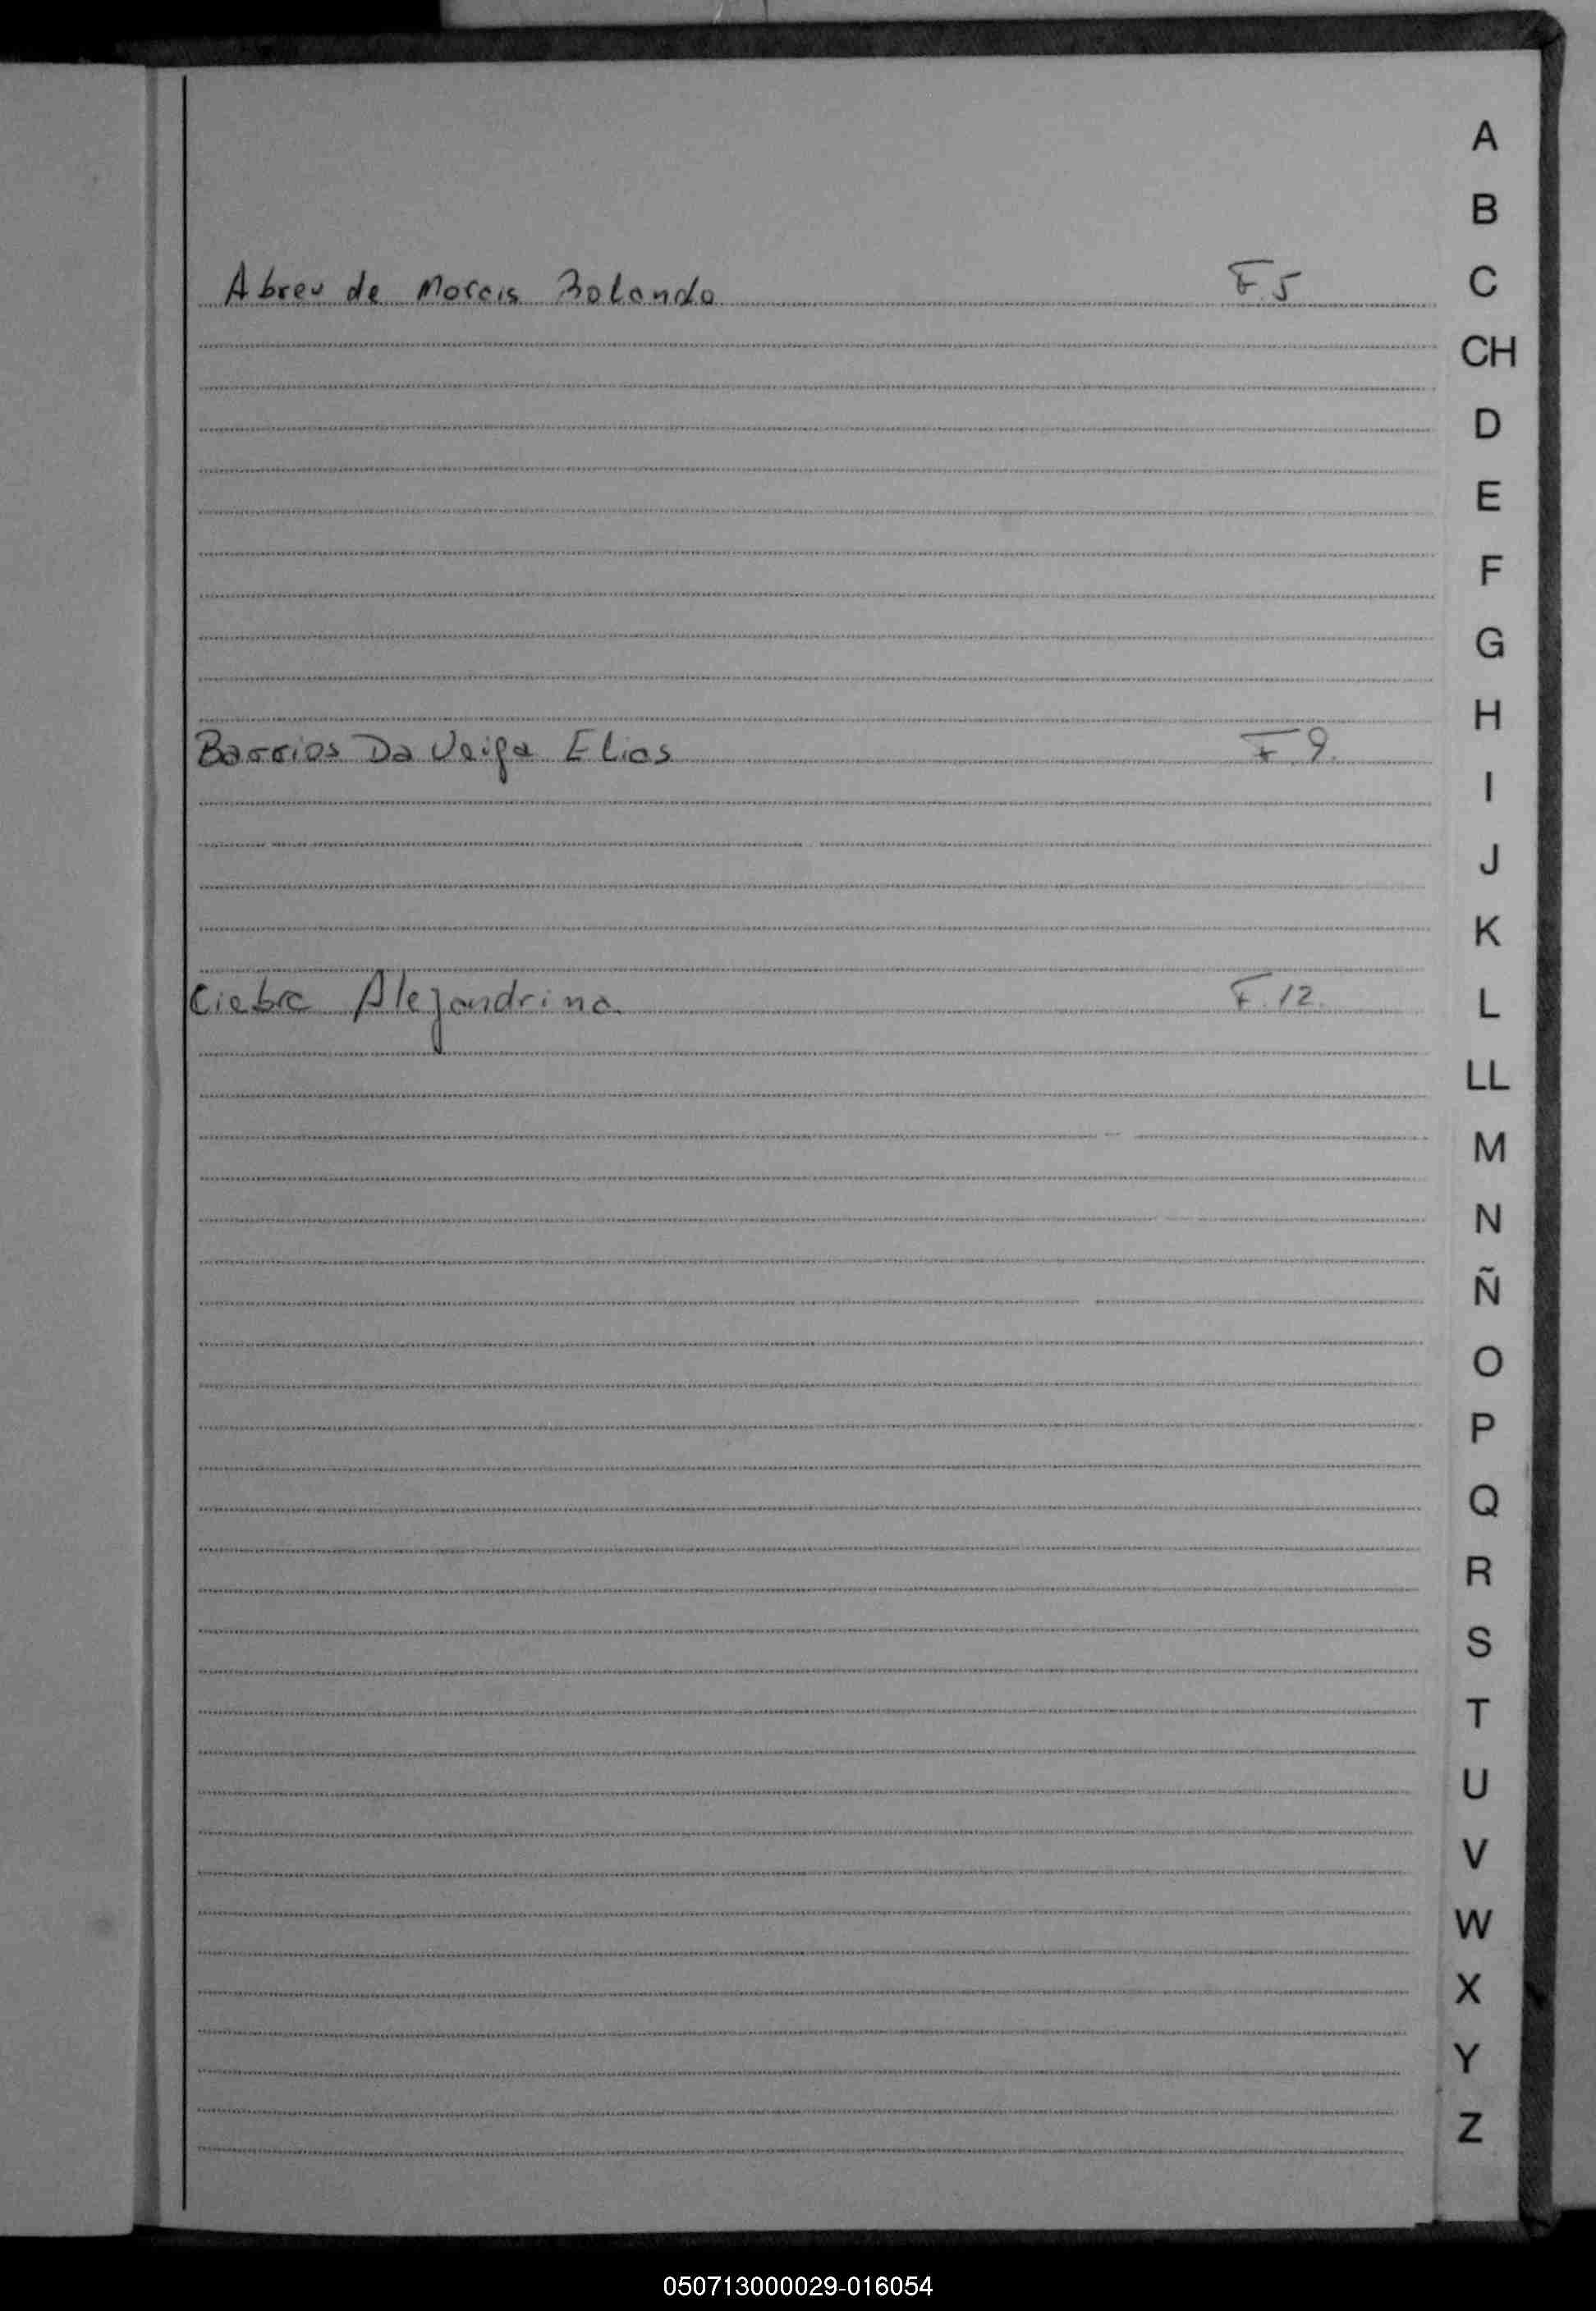 A
B
Abreu de Morais Rolando F.5
C
CH
D
E
F
G
H
Barrios Da Veiga Elias F 9.
I
J
K
Ciebra Alejandrina F.12.
L
LL
M
N
Ñ
O
P
Q
R
S
T
U
V
W
X
Y
Z
050713000029-016054